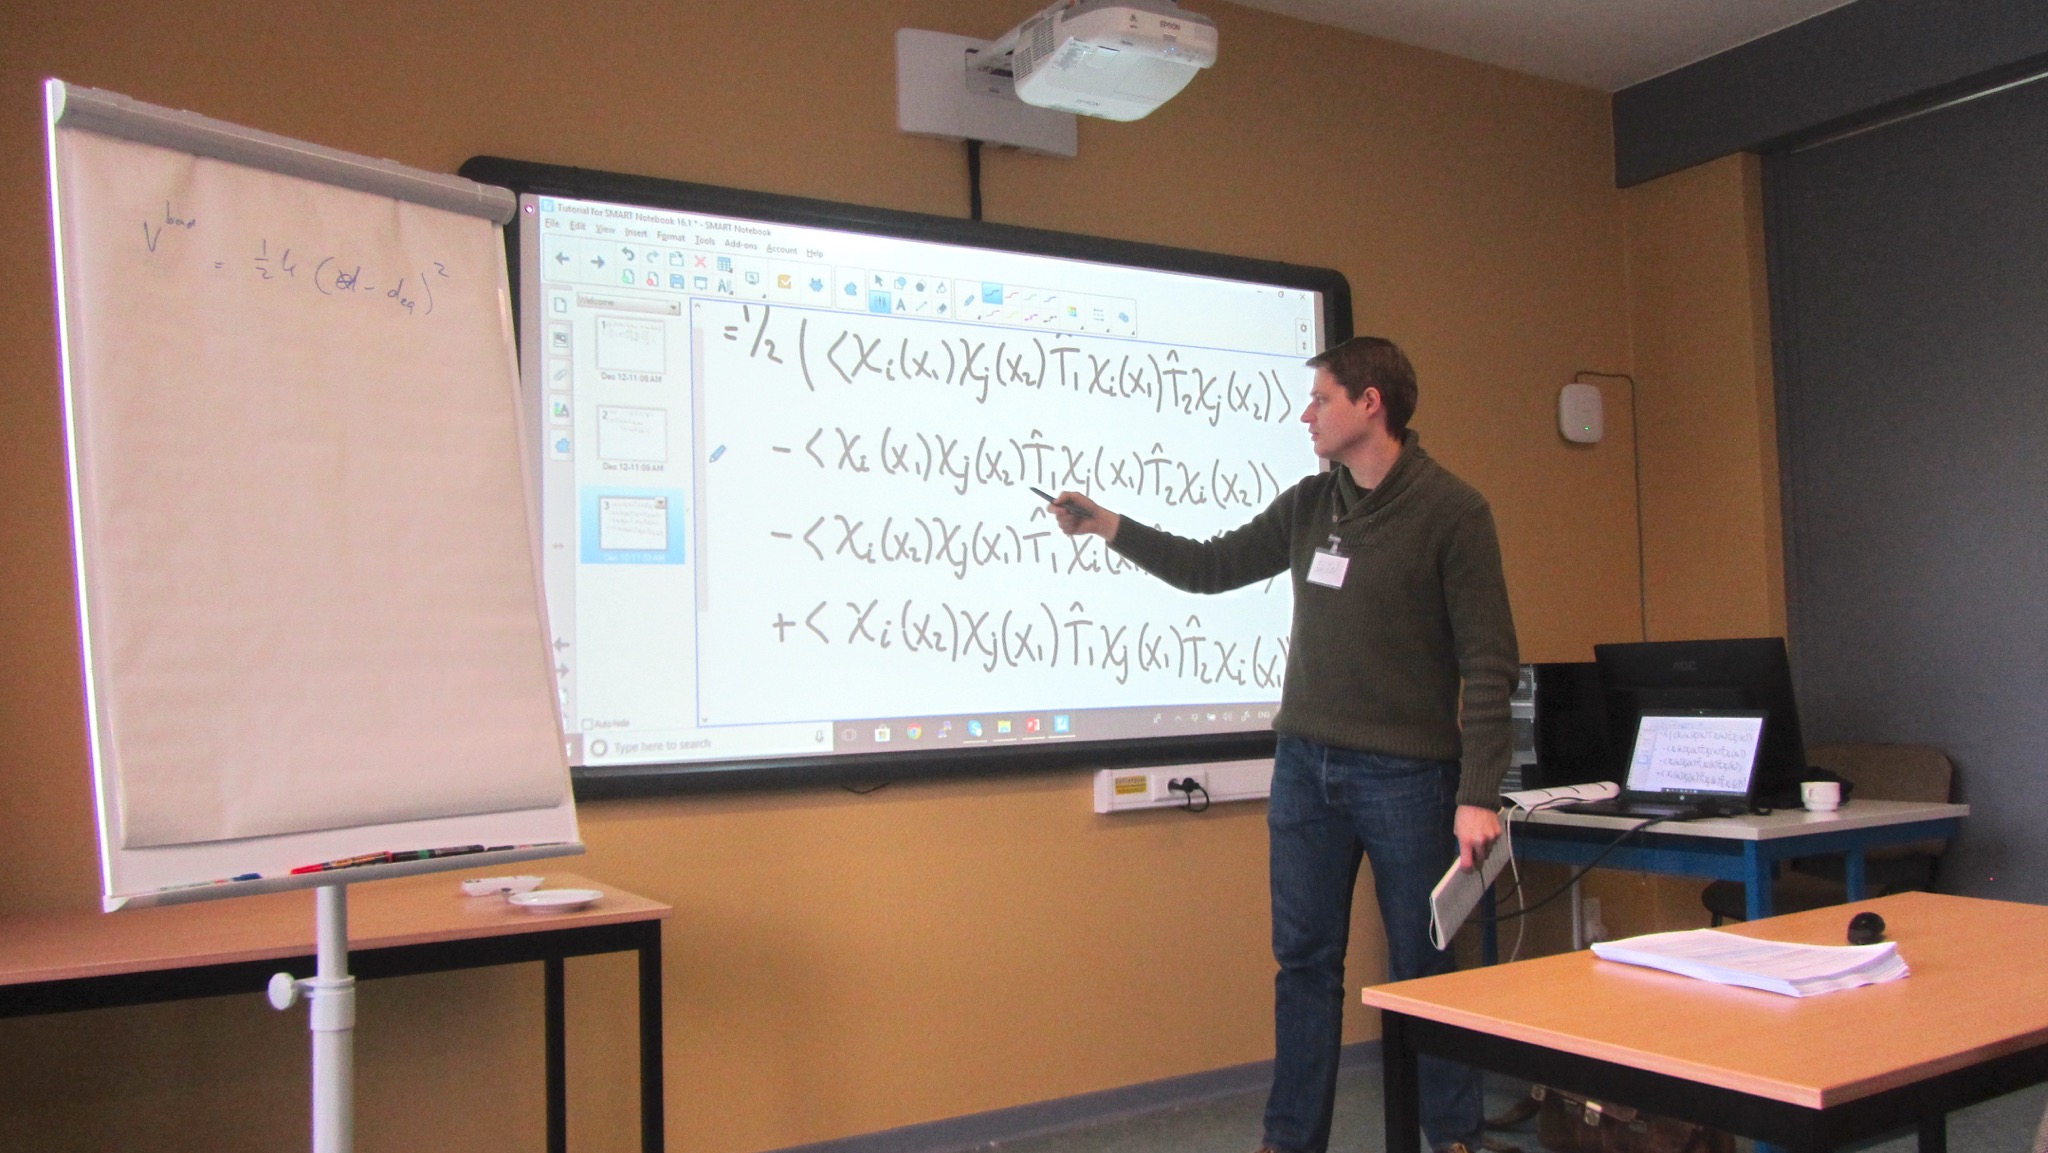 V^bond = 1/2 k (d - d_eq)^2
EPSON
EPSON
Tutorial for SMART Notebook 16.1 * - SMART Notebook
File Edit View Insert Format Tools Add-ons Account Help
Welcome
1
Dec 12-11:08 AM
2
Dec 12-11:09 AM
3
=1/2 ( <χi(x1)χj(x2)T̂1χi(x1)T̂2χj(x2)>
-<χi(x1)χj(x2)T̂1χj(x1)T̂2χi(x2)>
-<χi(x2)χj(x1)T̂1χi(x1
+<χi(x2)χj(x1)T̂1χj(x1)T̂2χi(x1
Auto-hide
Type here to search
ENG
AOC